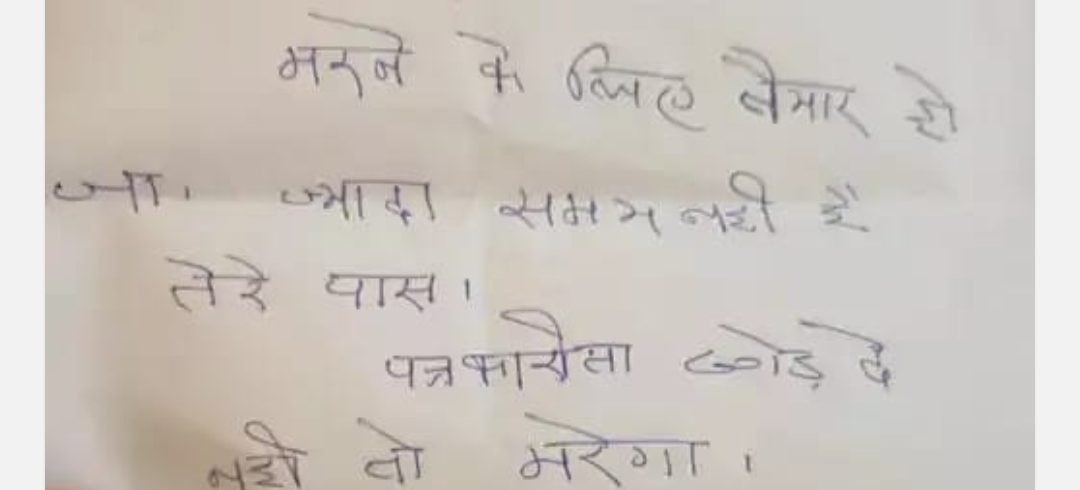 मरने के लिए तैयार हो
जा. ज्यादा समय नही है
तेरे पास।
पत्रकारीता छोड़ दे
नही तो मरेगा।